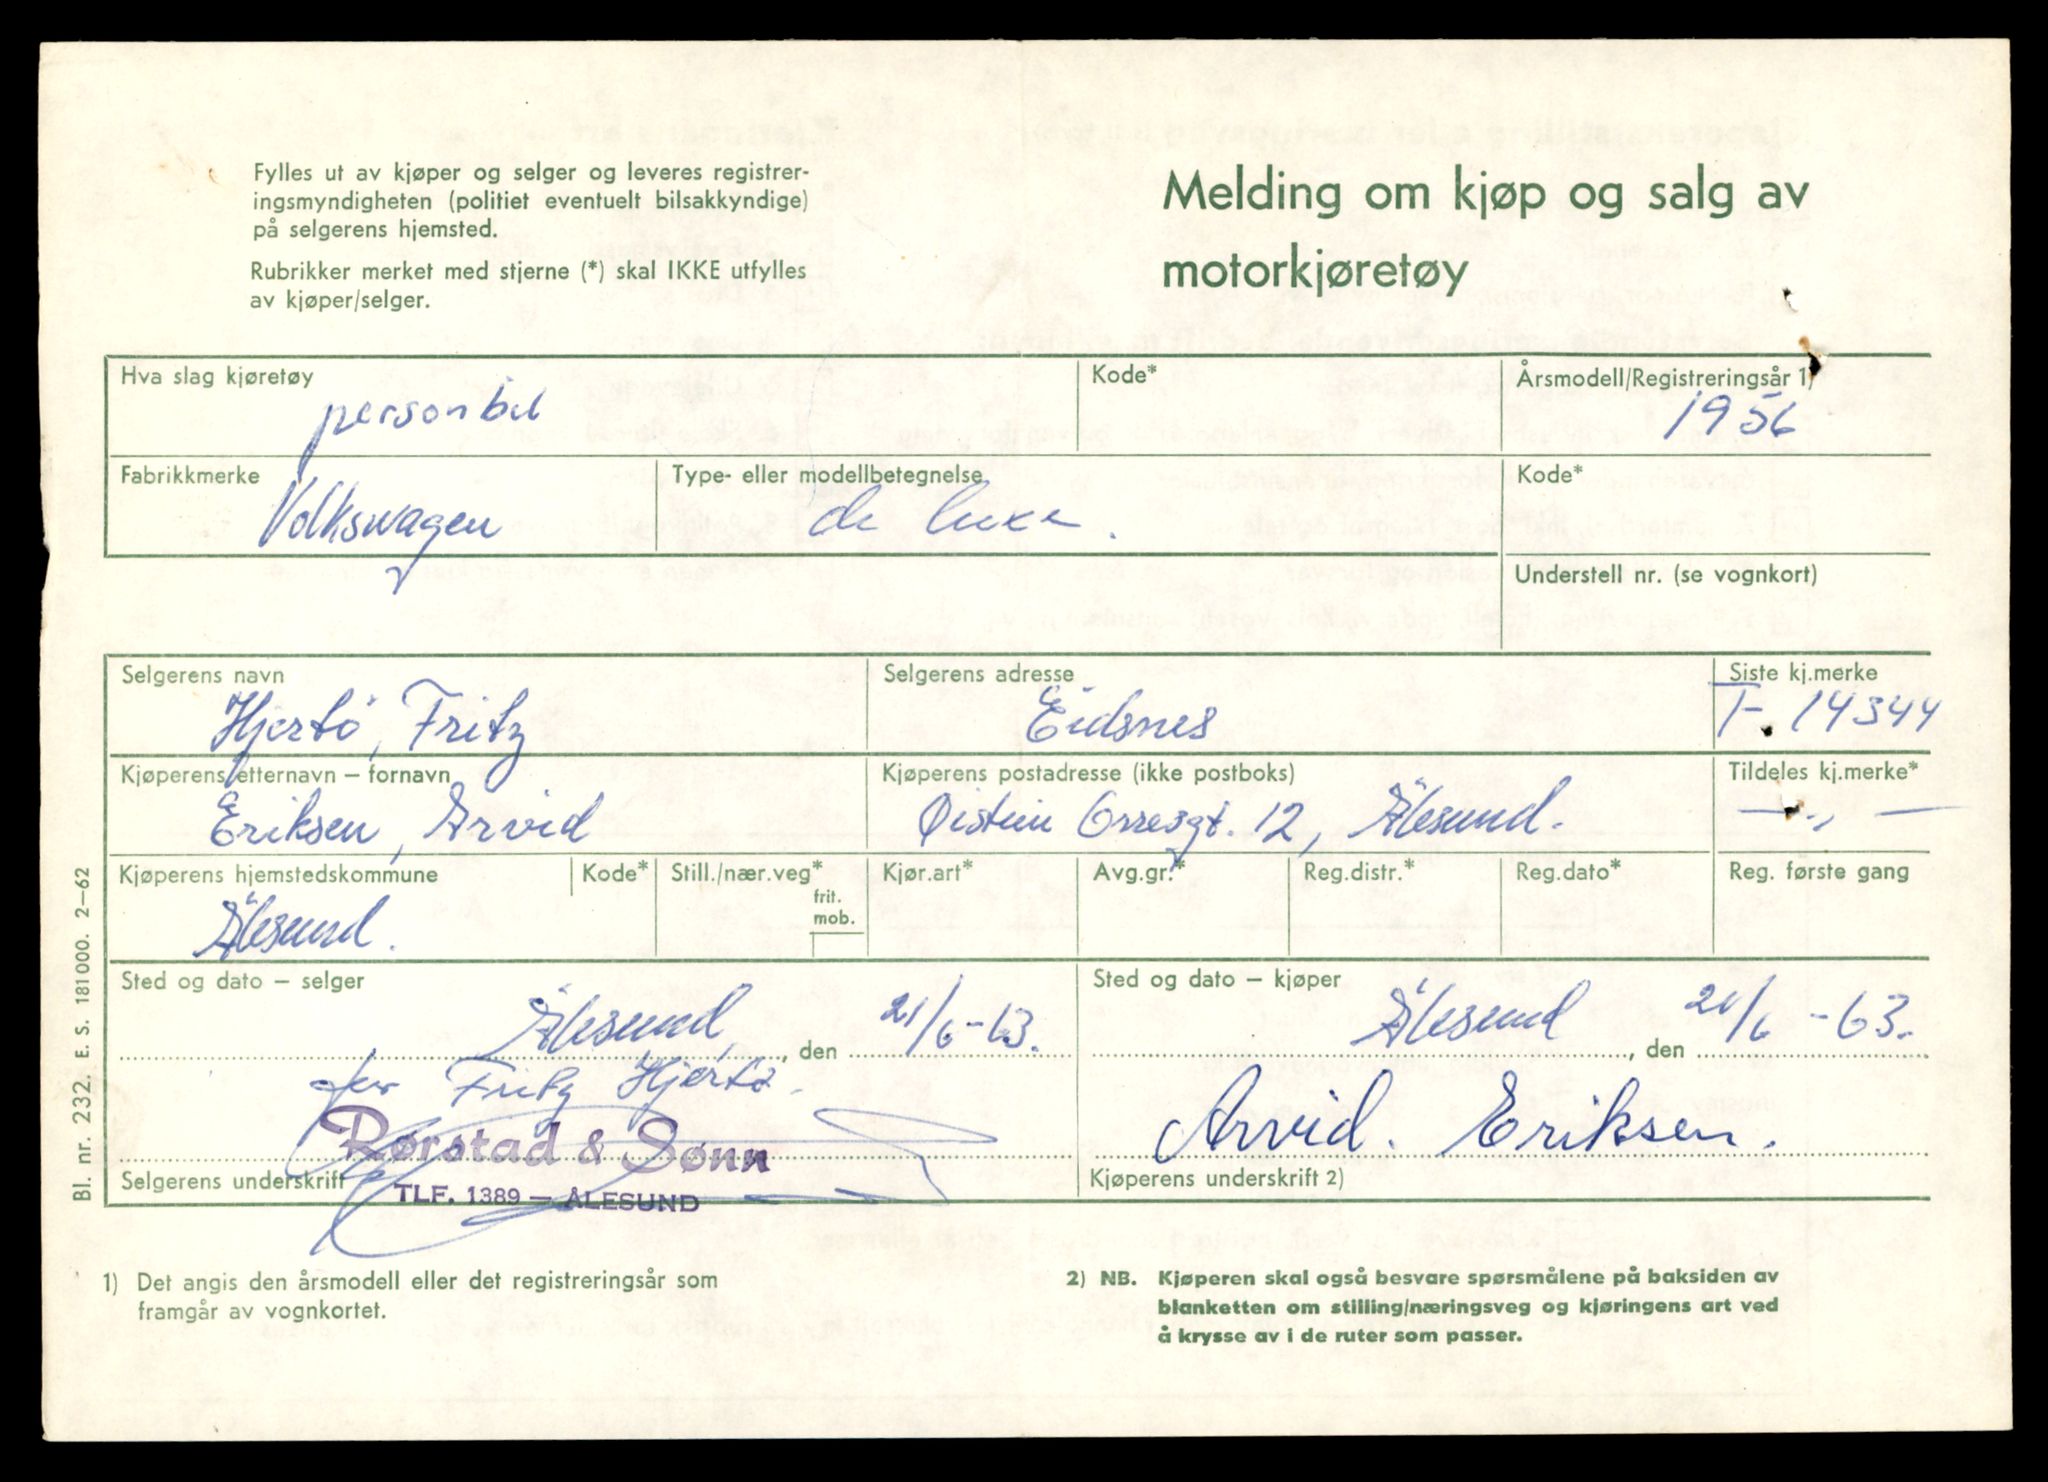 Fylles ut av kjøper og selger og leveres registrer-
ingsmyndigheten (politiet eventuelt bilsakkyndige)
på selgerens hjemsted.
Rubrikker merket med stjerne (*) skal IKKE utfylles
av kjøper/selger.
Melding om kjøp og salg av
motorkjøretøy
Hva slag kjøretøy
personbil
Kode*
Årsmodell/Registreringsår 1)
1956
Fabrikkmerke
Volkswagen
Type- eller modellbetegnelse
de luxe.
Kode*
Understell nr. (se vognkort)
Selgerens navn
Hjertö, Fritz
Selgerens adresse
Eidsnes
Siste kj.merke
T-14344
Kjøperens etternavn – fornavn
Eriksen, Arvid
Kjøperens postadresse (ikke postboks)
Øistein Orresgt. 12, Ålesund.
Tildeles kj.merke*
— „ —
Kjøperens hjemstedskommune
Ålesund.
Kode*
Still./nær.veg*
frit.
mob.
Kjør.art*
Avg.gr.*
Reg.distr.*
Reg.dato*
Reg. første gang
Sted og dato – selger
Ålesund, den 21/6-63.
for Fritz Hjertö.
Rørstad & Sønn
TLF. 1389 — ÅLESUND
Selgerens underskrift
Sted og dato – kjøper
Ålesund, den 21/6-63.
Arvid. Eriksen.
Kjøperens underskrift 2)
Bl. nr. 232. E. S. 181000. 2–62
1) Det angis den årsmodell eller det registreringsår som
framgår av vognkortet.
2) NB. Kjøperen skal også besvare spørsmålene på baksiden av
blanketten om stilling/næringsveg og kjøringens art ved
å krysse av i de ruter som passer.